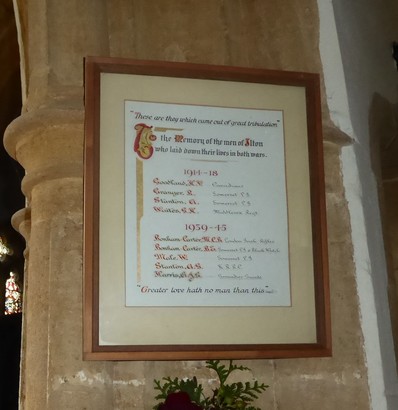 "These are they which came out of great tribulation"
To the Memory of the men of Ilton
who laid down their lives in both wars.
1914-18
Goodland, H.V.
Granger, R. Somerset L.I.
Stanton, A. Somerset L.I.
Winter, S.H. Middlesex Regt.
1939-45
Bonham-Carter, M.C.R.
Bonham-Carter, B.
Male, W. Somerset L.I.
Stanton, A.G.
Harris, Grenadier Guards
"Greater love hath no man than this"